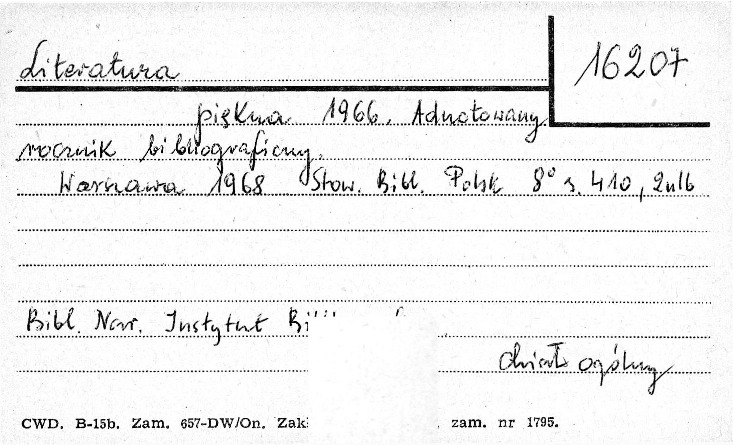 Literatura
16207
piękna 1966. Adnotowany
rocznik bibliograficzny.
Warszawa 1968 Stow. Bibl. Polsk 8° s. 410, 2nlb
Bibl. Nar. Instytut
dział ogólny
CWD. B-15b. Zam. 657-DW/On. zam. nr 1795.